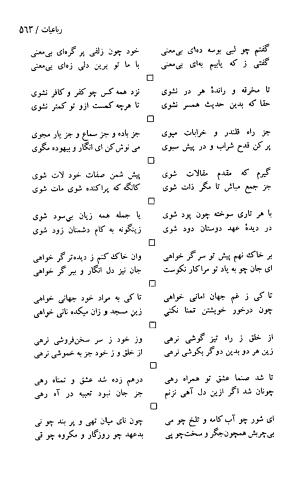 رباعیات / ۵۶۳
گفتم چو لبی بوسه ده‌ای بی‌معنی خود چون زلفی پر گره‌ای بی‌معنی
گفتی ز که یابیم به‌ای بی‌معنی با ما تو برین دلی زه‌ای بی‌معنی
تا مخرقه و راندهٔ هر در نشوی نزد همه کس چو کفر و کافر نشوی
حقا که بدین حدیث همسر نشوی تا هرچه کمست ازو تو کمتر نشوی
جز راه قلندر و خرابات مپوی جز باده و جز سماع و جز یار مجوی
پر کن قدح شراب و در پیش سبوی می نوش کن ای نگار و بیهوده مگوی
گیرم که مقدم مقالات شوی پیش شمن صفات خود لات شوی
جز جمع مباش تا مگر ذات شوی کانگه که پراکنده شوی مات شوی
با هر تاری سوخته چون پود شوی یا جمله همه زیان بی‌سود شوی
در دیدهٔ عهد دوستان دود شوی زینگونه به کام دشمنان زود شوی
بر خاک نهم پیش تو سر گر خواهی وان خاک کنم ز دیده‌تر گر خواهی
ای جان چو به یاد تو مرا کار نکوست جان نیز دل انگار و ببر گر خواهی
تا کی ز غم جهان امانی خواهی تا کی به مراد خود جهانی خواهی
چون درخور خویشتن تمنا نکنی زین مسجد و زان میکده نانی خواهی
از خلق ز راه تیز گوشی نرهی وز خود ز سر سخن‌فروشی نرهی
زین هر دو بدین دو گر بکوشی نرهی از خلق و ز خود جز به خموشی نرهی
تا شد صنما عشق تو همراه رهی درهم زده شد عشق و تمناه رهی
چونان شد اگر ازین دل آهی نزنم جز جان نبود تعبیه در آه رهی
ای شور چو آب کامه و تلخ چو می چون نای میان تهی و پر بند چو نی
بی‌چربش همچون جگر و سخت چو پی بدعهد چو روزگار و مکروه چو قی